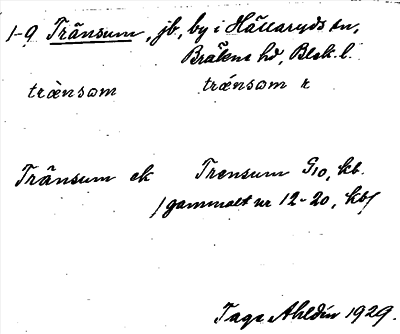 1-9 Tränsum, jb, by i Hällaryds sn,
Bräkne hd, Blek. l.
trænsom trænsom r
Tränsum ek Trensum G10, kb.
/gammalt nr 12-20, kb/
Tage Ahldin 1929.